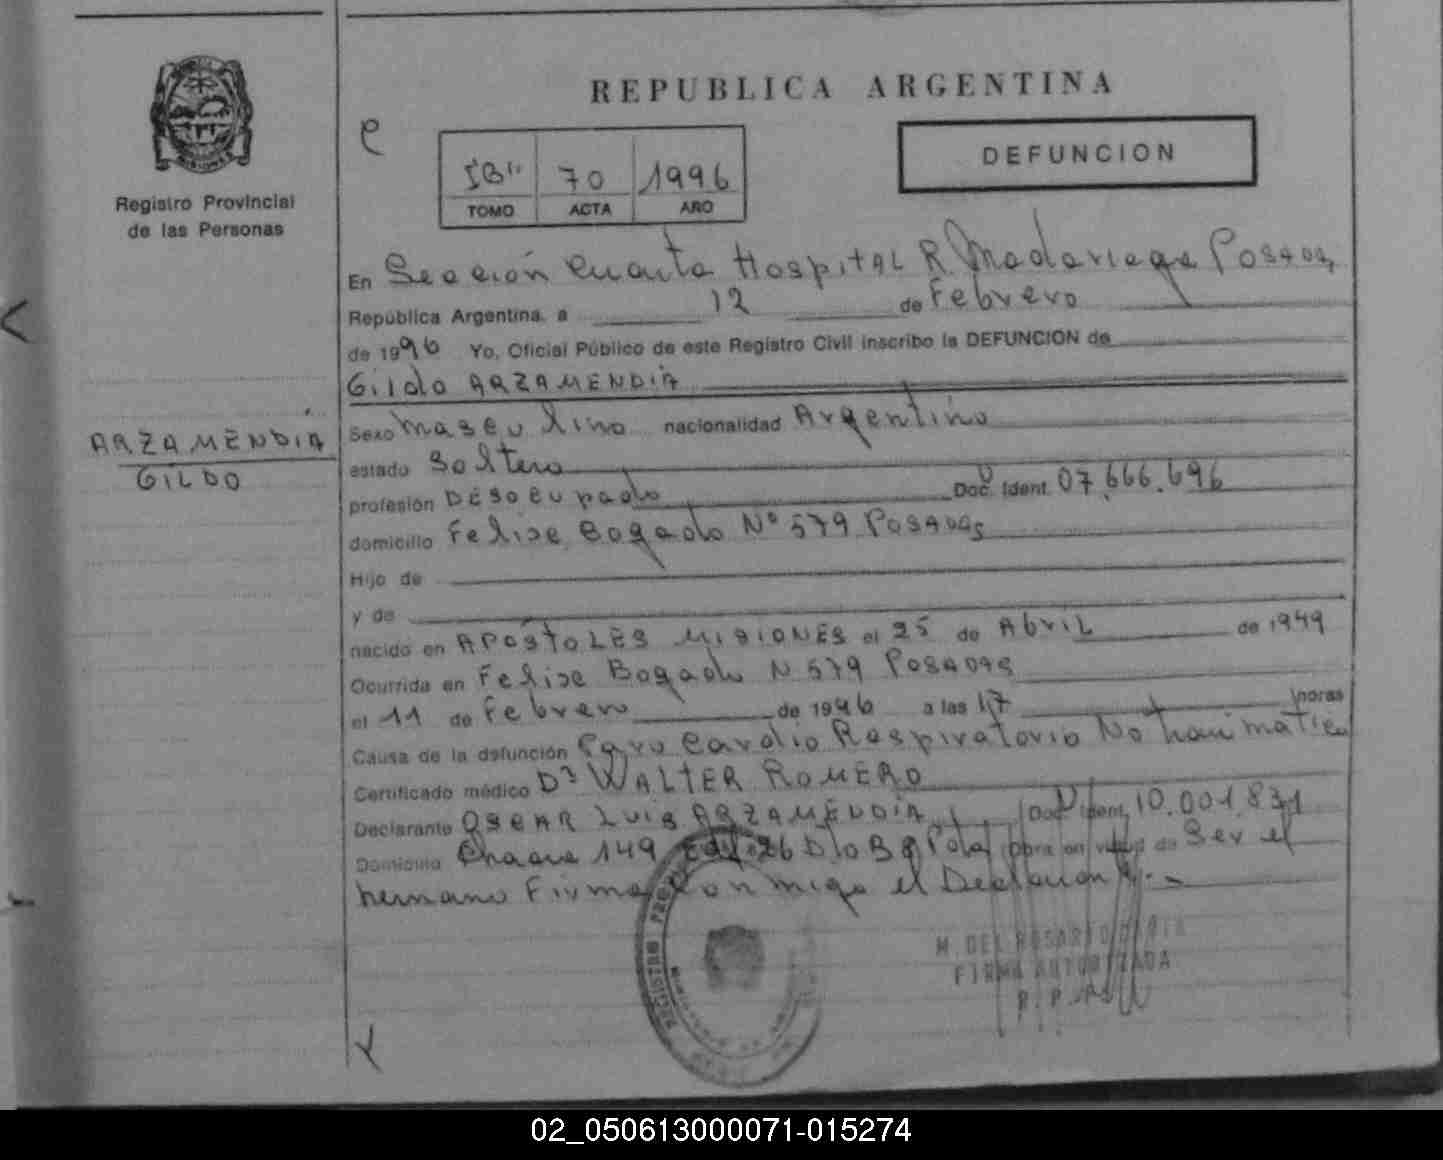 REPUBLICA ARGENTINA
DEFUNCION
70 1996
TOMO ACTA AÑO
Registro Provincial
de las Personas
ARZAMENDIA
GILDO
En Sección Cuarta Hospital R. Madariaga Posadas
República Argentina, a 12 de Febrero
de 1996 Yo, Oficial Público de este Registro Civil inscribo la DEFUNCION de
Gildo ARZAMENDIA
Sexo Masculino nacionalidad Argentino
estado Soltero
profesión Desocupado Doc. Ident. 07.666.696
domicilio Felise Bogado Nº 579 Posadas
Hijo de
y de
nacido en APOSTOLES MISIONES el 25 de Abril de 1949
Ocurrida en Felise Bogado N 579 Posadas
el 11 de Febrero de 1996 a las 17 horas
Causa de la defunción Paro Cardio Respiratorio No traumatico
Certificado médico Dr WALTER ROMERO
Declarante OSCAR LUIS ARZAMENDIA Doc. Ident. 10.001.831
Domicilio 149 obra en virtud de Ser el
hermano Firma Conmigo el Declarante.-
M. DEL ROSARIO
FIRMA AUTORIZADA
REGISTRO
02_050613000071-015274